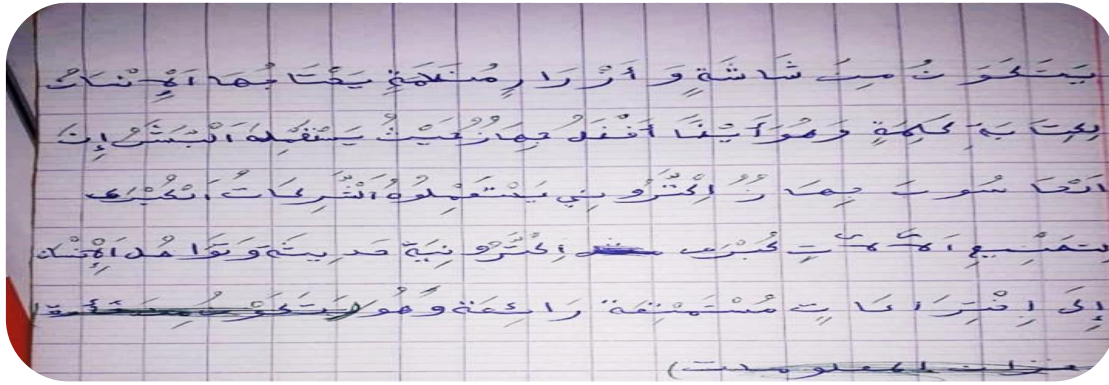 يَتَكَوَّنُ مِنْ شَاشَةٍ وَ أَزْرَارٍ مُنَظَّمَةٍ يَحْتَاجُهَا اَلْإِنْسَانُ
بِكِتَابَةِ كَلِمَةٍ وَهُوَ أَيْضًا أَفْضَلُ جِهَازُ حَيْثُ يَسْتَعْمِلُهُ اَلْبَشَرُ إِنَّ
اَلْحَاسُوبَ جِهَازُ إِلِكْتُرُونِي يَسْتَعْمِلُوهُ اَلشَّرِكَاتُ اَلْكُبْرَى
لِتَصْنِيعِ اَلْآلَاتٍ كُبْرَى إِلِكْتُرُونِيَّة حَدِيثَة وَ تَوَاصُل اَلْإِنْسَان
إِلَى إِخْتِرَاعَاتٍ رَائِعَة وَهُوَ